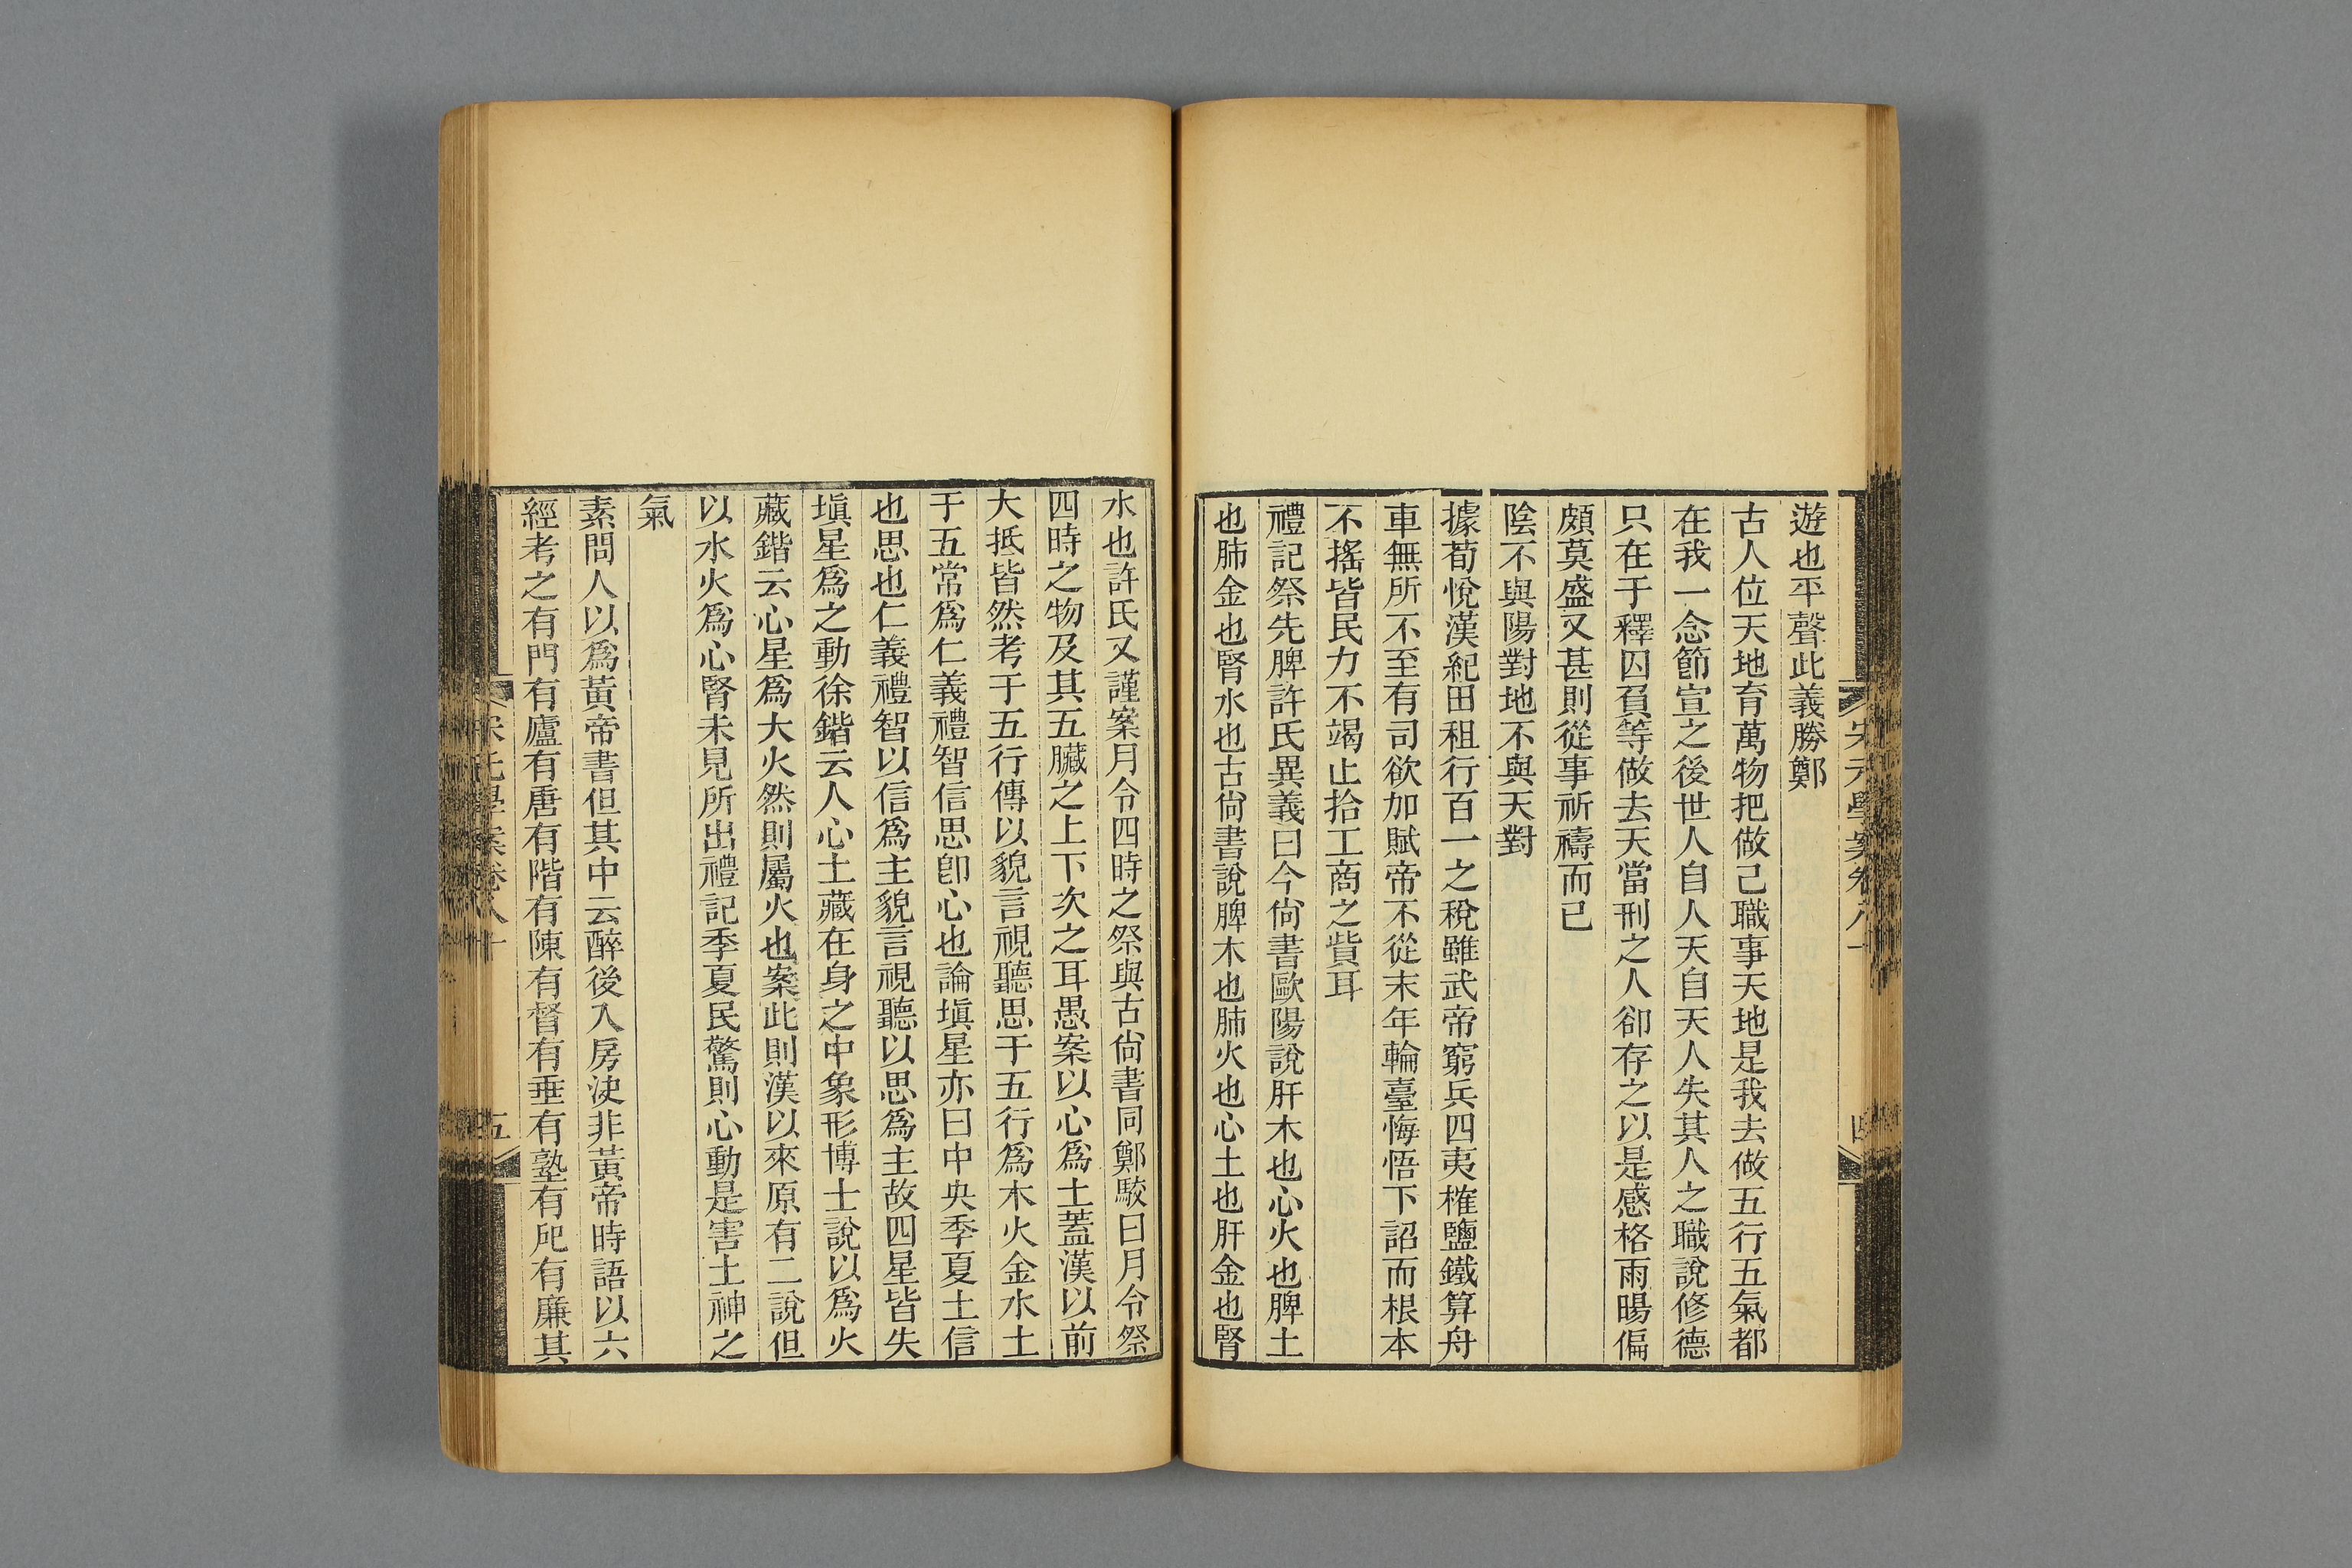 宋元學案卷八十
遊也平聲此義勝鄭
古人位天地育萬物把做己職事天地是我去做五行五氣都
在我一念節宣之後世人自人天自天人失其人之職說修德
只在于釋囚負等做去天當刑之人卻存之以是感格雨暘偏
頗莫盛又甚則從事祈禱而已
陰不與陽對地不與天對
據荀悅漢紀田租行百一之稅雖武帝窮兵四夷榷鹽鐵算舟
車無所不至有司欲加賦帝不從末年輪臺悔悟下詔而根本
不搖皆民力不竭止拾工商之貲耳
禮記祭先脾許氏異義曰今尙書歐陽說肝木也心火也脾土
也肺金也腎水也古尙書說脾木也肺火也心土也肝金也腎
水也許氏又謹案月令四時之祭與古尙書同鄭駮曰月令祭
四時之物及其五臟之上下次之耳愚案以心爲土蓋漢以前
大抵皆然考于五行傳以貌言視聽思于五行爲木火金水土
于五常爲仁義禮智信思卽心也論塡星亦曰中央季夏土信
也思也仁義禮智以信爲主貌言視聽以思爲主故四星皆失
塡星爲之動徐鍇云人心土藏在身之中象形博士說以爲火
藏鍇云心星爲大火然則屬火也案此則漢以來原有二說但
以水火爲心腎未見所出禮記季夏民驚則心動是害土神之
氣
素問人以爲黃帝書但其中云醉後入房決非黃帝時語以六
經考之有門有廬有唐有階有陳有督有垂有塾有戺有廉其
宋元學案卷八十
五